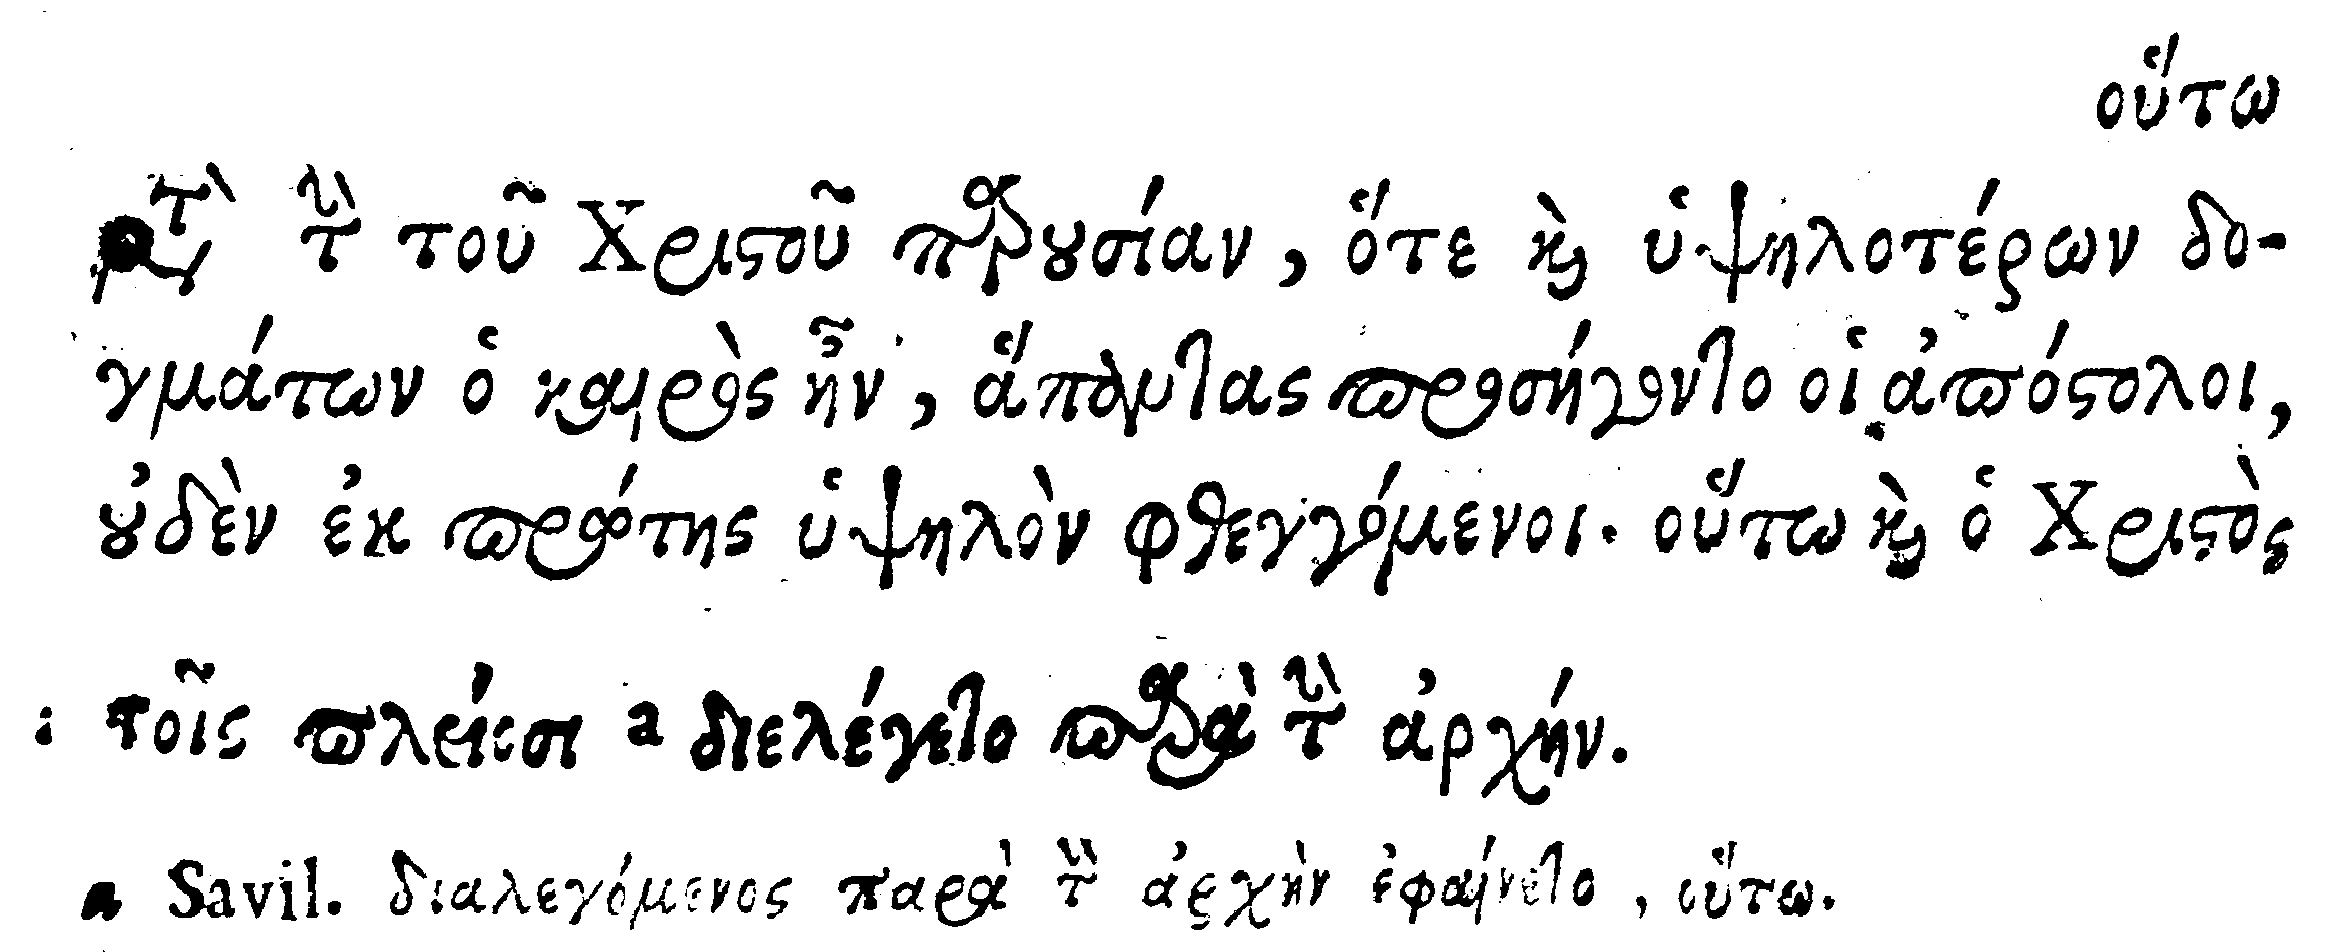 οὕτω
μετὰ τὴν τοῦ Χριστοῦ παρουσίαν, ὅτε καὶ ὑψηλοτέρων δο-
γμάτων ὁ καιρὸς ἦν, ἅπαντας προσήγοντο οἱ ἀπόστολοι,
οὐδὲν ἐκ πρώτης ὑψηλὸν φθεγγόμενοι. οὕτω καὶ ὁ Χριστὸς
τοῖς πλείοσι a διελέγετο παρὰ τὴν ἀρχήν.
a Savil. διαλεγόμενος παρὰ τὴν ἀρχὴν ἐφαίνετο, οὕτω.